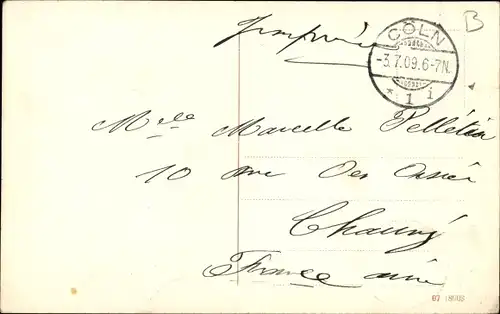 Imprimé
B
CÖLN
-3.7.09.6-7N.
* 1 i
Mlle Marcelle Pelletier
10 rue des
Chauny
France Aisne
07 18503